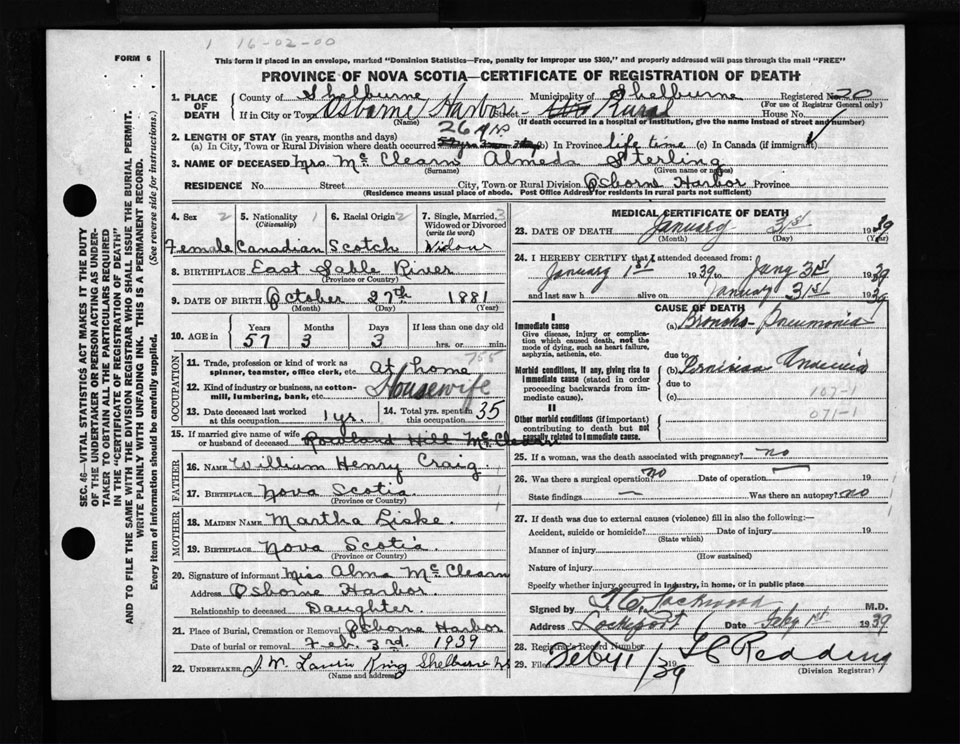 1 16-02-00
FORM 6
This form if placed in an envelope, marked "Dominion Statistics—Free, penalty for improper use $300," and properly addressed will pass through the mail "FREE"
PROVINCE OF NOVA SCOTIA—CERTIFICATE OF REGISTRATION OF DEATH
1. PLACE OF DEATH County of Shelburne Municipality of Shelburne Registered No. 20
(For use of Registrar General only)
If in City or Town Osborne Harbor Street Rural House No.
(Name) (If death occurred in a hospital or institution, give the name instead of street and number)
2. LENGTH OF STAY (in years, months and days) 26 yrs
(a) In City, Town or Rural Division where death occurred (b) In Province life time (c) In Canada (if immigrant)
3. NAME OF DECEASED Mrs. McClearn Almeda Sterling
(Surname) (Given name or names)
RESIDENCE No. Street City, Town or Rural Division Osborne Harbor Province
(Residence means usual place of abode. Post Office Address for residents in rural parts not sufficient)
4. Sex 2 5. Nationality 1 (Citizenship) 6. Racial Origin 2 7. Single, Married, 3 Widowed or Divorced (write the word)
Female Canadian Scotch Widow
8. BIRTHPLACE East Sable River
(Province or Country)
9. DATE OF BIRTH October 27th 1881
(Month) (Day) (Year)
10. AGE in Years Months Days If less than one day old
57 3 3 hrs. or min.
OCCUPATION
11. Trade, profession or kind of work as spinner, teamster, office clerk, etc. at home
12. Kind of industry or business, as cotton-mill, lumbering, bank, etc. Housewife
13. Date deceased last worked at this occupation 1 yr. 14. Total yrs. spent in this occupation 35
15. If married give name of wife or husband of deceased Rowland Hill McClearn
FATHER
16. NAME William Henry Craig
17. BIRTHPLACE Nova Scotia 1
(Province or Country)
MOTHER
18. MAIDEN NAME Martha Liske.
19. BIRTHPLACE Nova Scotia
(Province or Country)
20. Signature of informant Miss Alma McClearn
Address Osborne Harbor
Relationship to deceased Daughter.
21. Place of Burial, Cremation or Removal Osborne Harbor
Date of burial or removal Feb. 3rd. 1939
22. UNDERTAKER J.W. Laurie King Shelburne NS
(Name and address)
MEDICAL CERTIFICATE OF DEATH
23. DATE OF DEATH January 31st 1939
(Month) (Day) (Year)
24. I HEREBY CERTIFY that I attended deceased from:
January 1st 1939 to Jany 31st 1939
and last saw h alive on January 31st 1939
CAUSE OF DEATH
I
Immediate cause
Give disease, injury or complication which caused death, not the mode of dying, such as heart failure, asphyxia, asthenia, etc.
(a) Broncho Pneumonia
due to
Morbid conditions, if any, giving rise to immediate cause (stated in order proceeding backwards from immediate cause).
(b) Pernicious Anaemia
due to
(c) 107-1
071-1
II
Other morbid conditions (if important) contributing to death but not causally related to immediate cause.
25. If a woman, was the death associated with pregnancy? no
26. Was there a surgical operation? no Date of operation 19
State findings — Was there an autopsy? no
27. If death was due to external causes (violence) fill in also the following:—
Accident, suicide or homicide? Date of injury 19
(State which)
Manner of injury
(How sustained)
Nature of injury
Specify whether injury occurred in industry, in home, or in public place
Signed by Lockwood M.D.
Address Lockeport Date Feby 1st 1939
28. Registrar's Record Number
29. Filed Feby 1 1939 Redding
(Division Registrar)
SEC. 46—VITAL STATISTICS ACT MAKES IT THE DUTY OF THE UNDERTAKER OR PERSON ACTING AS UNDERTAKER TO OBTAIN ALL THE PARTICULARS REQUIRED IN THE "CERTIFICATE OF REGISTRATION OF DEATH"
AND TO FILE THE SAME WITH THE DIVISION REGISTRAR WHO SHALL ISSUE THE BURIAL PERMIT.
WRITE PLAINLY WITH UNFADING INK. THIS IS A PERMANENT RECORD.
Every item of information should be carefully supplied. (See reverse side for instructions.)